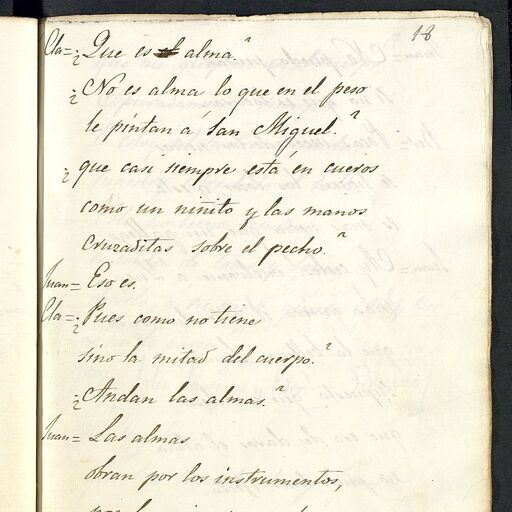 18
Cla= ¿Que es alma?
¿No es alma lo que en el peso
le pintan á San Miguel?
¿que casi siempre está en cueros
como un niñito y las manos
cruzaditas sobre el pecho?
Juan= Eso es.
Cla= ¿Pues como no tiene
sino la mitad del cuerpo?
¿Andan las almas?
Juan= Las almas
obran por los instrumentos,